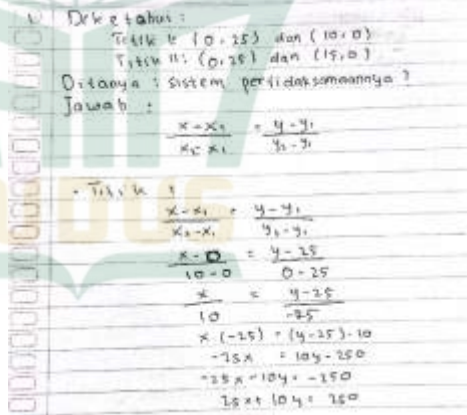 1. Diketahui :
Titik I: (0,25) dan (10,0)
Titik II: (0,25) dan (15,0)
Ditanya : sistem pertidaksamaannya ?
Jawab :
x - x₁ / x₂ - x₁ = y - y₁ / y₂ - y₁
• Titik I :
x - x₁ / x₂ - x₁ = y - y₁ / y₂ - y₁
x - 0 / 10 - 0 = y - 25 / 0 - 25
x / 10 = y - 25 / -25
x (-25) = (y - 25) . 10
-25x = 10y - 250
-25x - 10y = -250
25x + 10y = 250